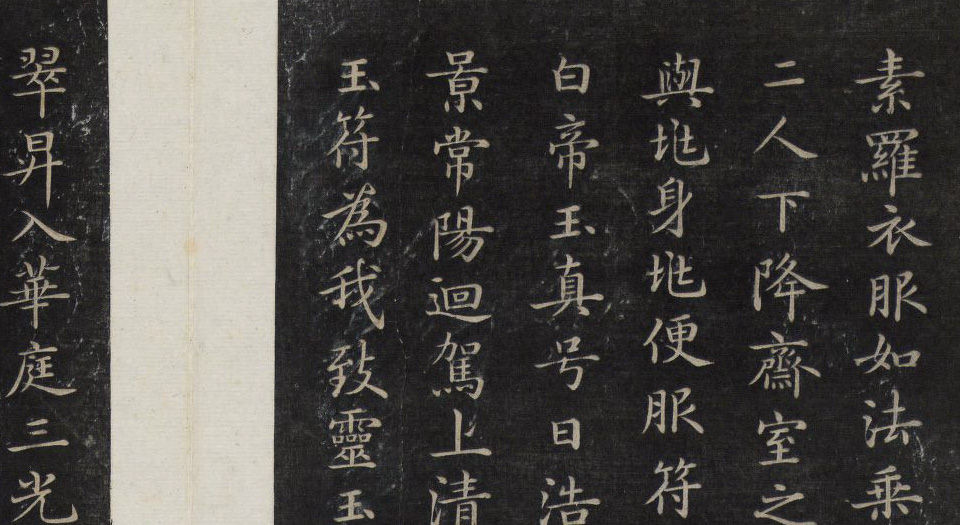 素羅衣服如法乘
二人下降齋室之
與兆身兆便服符
白帝玉真号曰浩
景常陽迴駕上清
玉符為我致靈玉
翠昇入華庭三光